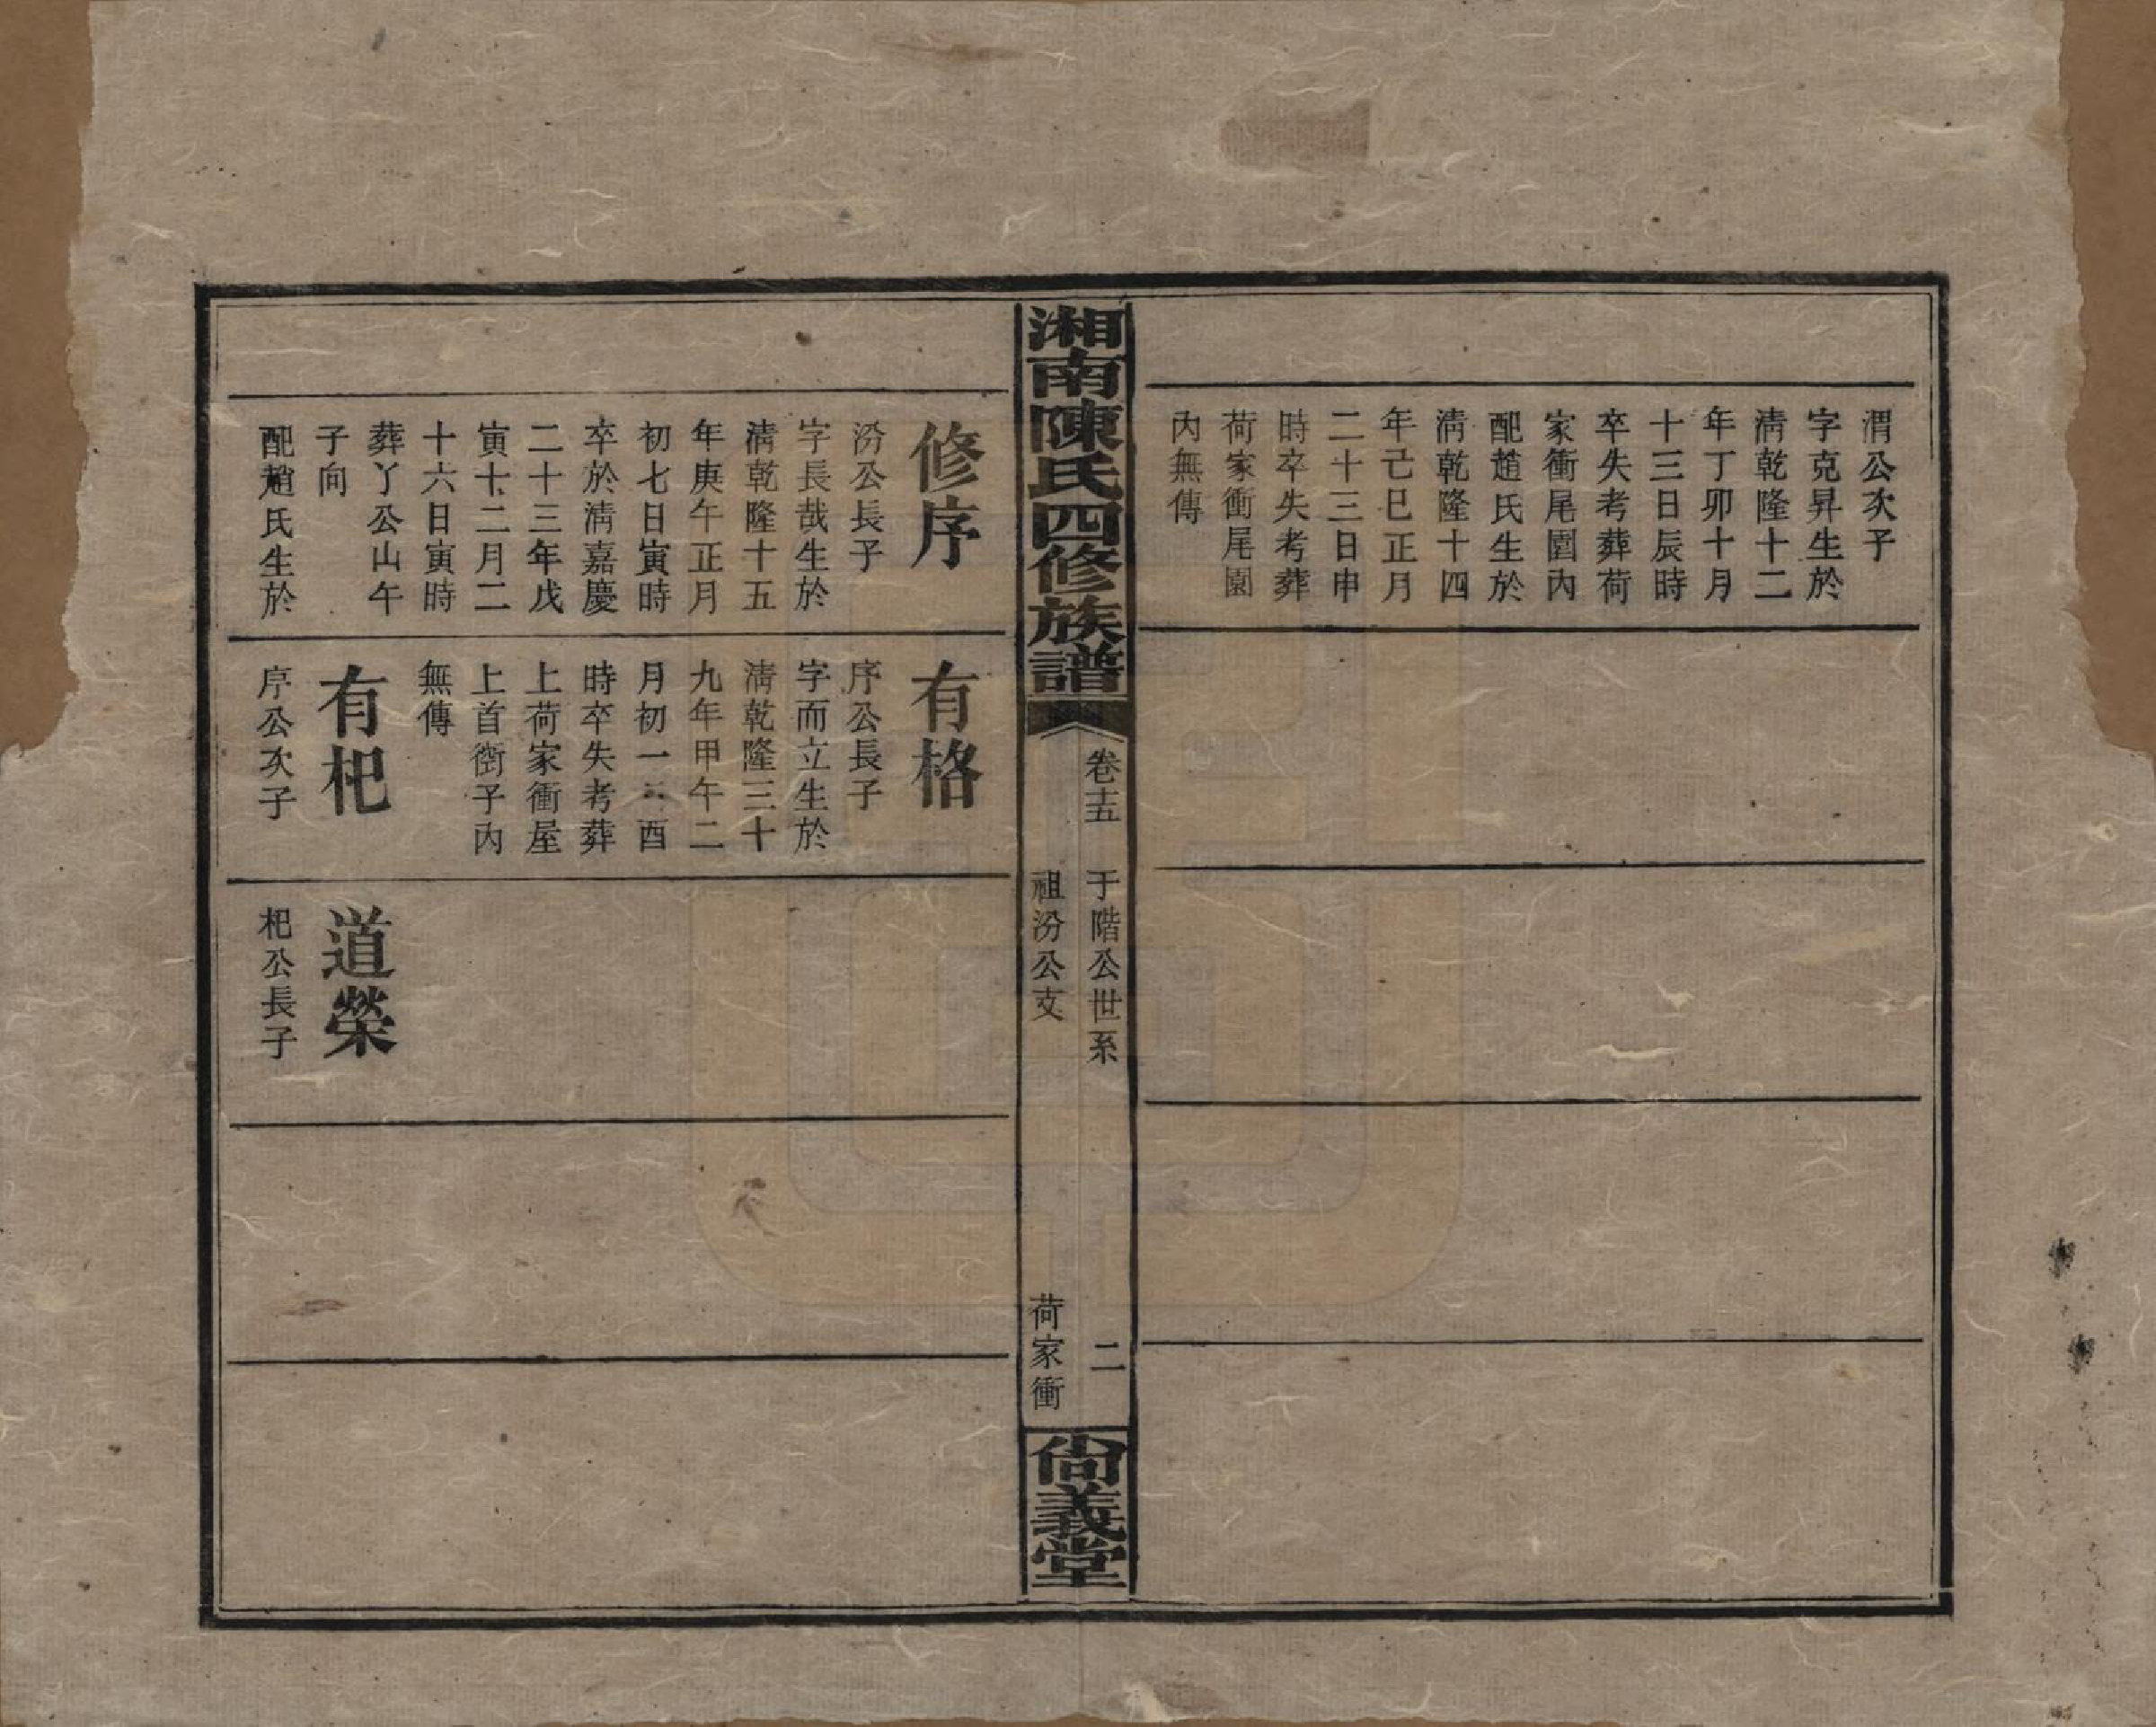 渭公次子
字克昇生於
清乾隆十二
年丁卯十月
十三日辰時
卒失考葬荷
家衝尾園內
配趙氏生於
清乾隆十四
年己巳正月
二十三日申
時卒失考葬
荷家衝尾園
內無傳
湘南陳氏四修族譜
卷十五
于階公世系
二
祖汾公支
荷家衝
尙義堂
修序
汾公長子
字長哉生於
清乾隆十五
年庚午正月
初七日寅時
卒於清嘉慶
二十三年戊
寅十二月二
十六日寅時
葬丫公山午
子向
配趙氏生於
有格
序公長子
字而立生於
清乾隆三十
九年甲午二
月初一 酉
時卒失考葬
上荷家衝屋
上首衝子內
無傳
有杞
序公次子
道榮
杞公長子